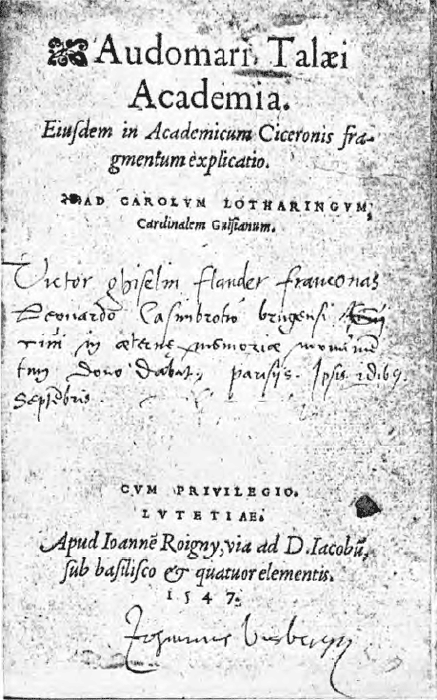 Audomari Talæi
Academia.
Eiusdem in Academicum Ciceronis fra-
gmentum explicatio.
AD CAROLVM LOTHARINGVM,
Cardinalem Guisianum.
Victor ghiselin flander franconas
Leonardo Casembrotio brugensi
in æternæ memoriæ monumē
tum dono dabat, parisijs. Ipsis idibq.
Septēbris.
CVM PRIVILEGIO.
LVTETIAE.
Apud Ioannē Roigny, via ad D. Iacobū,
sub basilisco & quatuor elementis.
1547.
Johannes